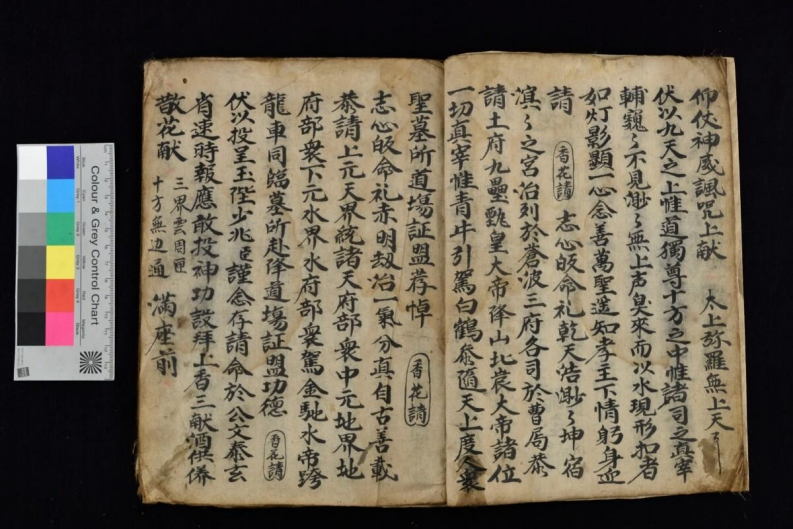 仰仗神威諷咒上献　太上弥羅無上天
伏以九天之上惟道獨尊十方之中惟諸司之真宰
輔窺〻不見渺〻無上声臭來而以水現形扣者
如灯影顯一心念善萬聖遥知孝主下情躬身迎
請　香花請　志心皈命礼乾天浩渺〻坤宿
溟〻之宮治列於蒼波三府各司於曹局恭
請土府九壘皇大帝降山北裳大帝諸位
一切真宰惟青牛引駕白鶴叅随天上度人衆
聖墓所道塲証盟荐悼　香花請
志心皈命礼赤明刼治一氣分真自古善載
恭請上元天界統諸天府部衆中元地界地
府部衆下元水界水府部衆駕金馳水帝跨
龍車同臨墓所赴降道塲証盟功德　香花請
伏以投呈玉陛少兆臣謹念存請命於公文泰玄
肖速時報應散投神功設拜上香三献酒供养
散花献　三界雲周匝　十方無边通　満座前
Colour & Grey Control Chart